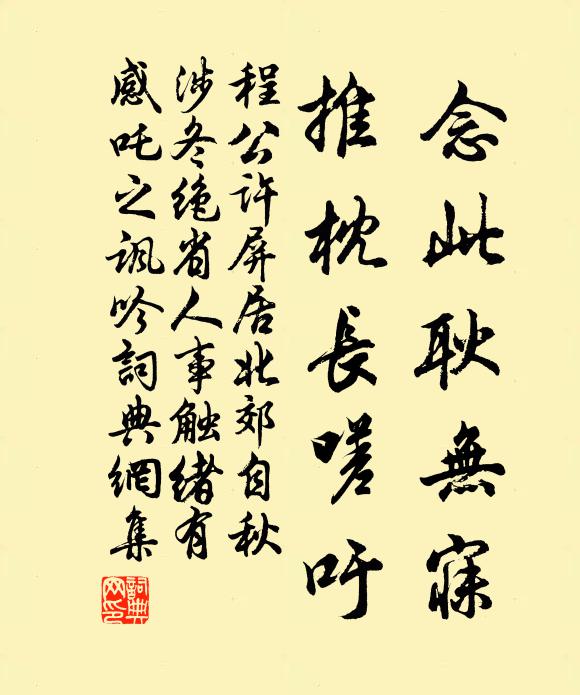 念此耿無寐
推枕長嗟吁
程公許屏居北郊自秋
涉冬绝省人事触绪有
感吒之諷吟詞典網集
詞典網印